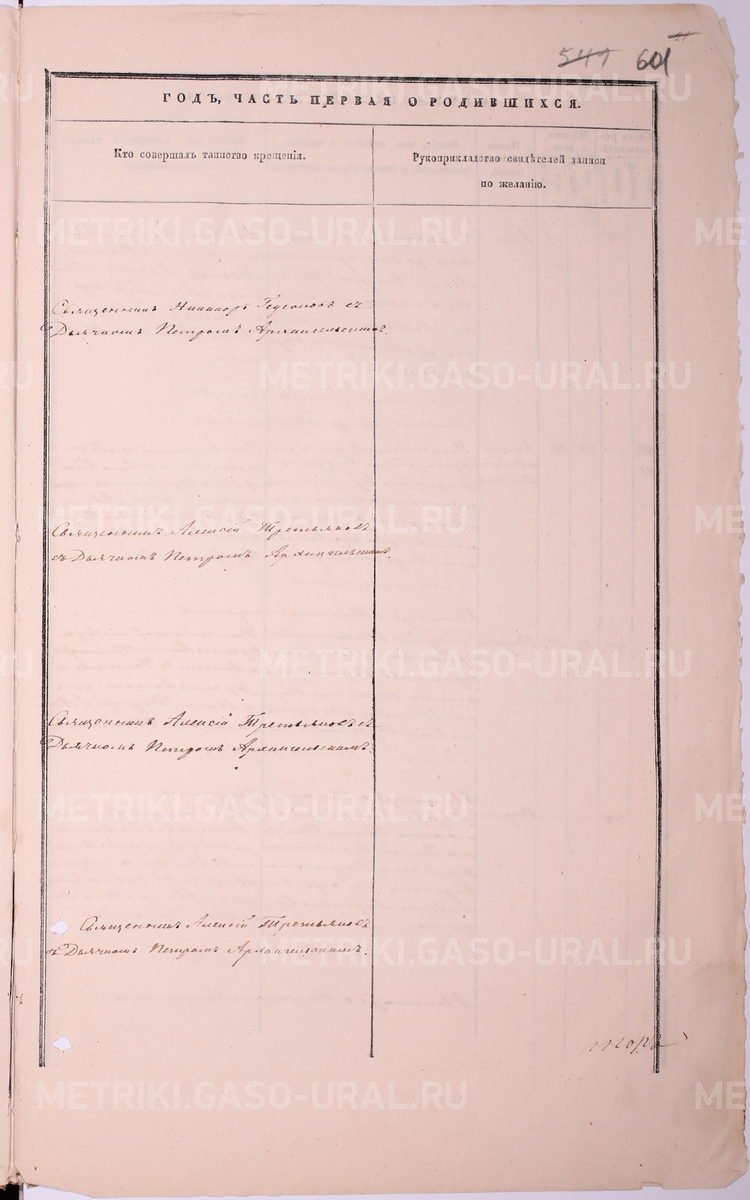 541 601
ГОДЪ, ЧАСТЬ ПЕРВАЯ О РОДИВШИХСЯ.
Кто совершалъ таинство крещенія.
Рукоприкладство свидѣтелей записи
по желанію.
Священникъ Никаноръ съ
Дьячкомъ Петромъ Архангельскимъ.
Священникъ Алексій Третьяковъ
съ Дьячкомъ Петромъ Архангельскимъ.
Священникъ Алексій Третьяковъ съ
Дьячкомъ Петромъ Архангельскимъ.
Священникъ Алексій Третьяковъ
съ Дьячкомъ Петромъ Архангельскимъ.
METRIKI.GASO-URAL.RU